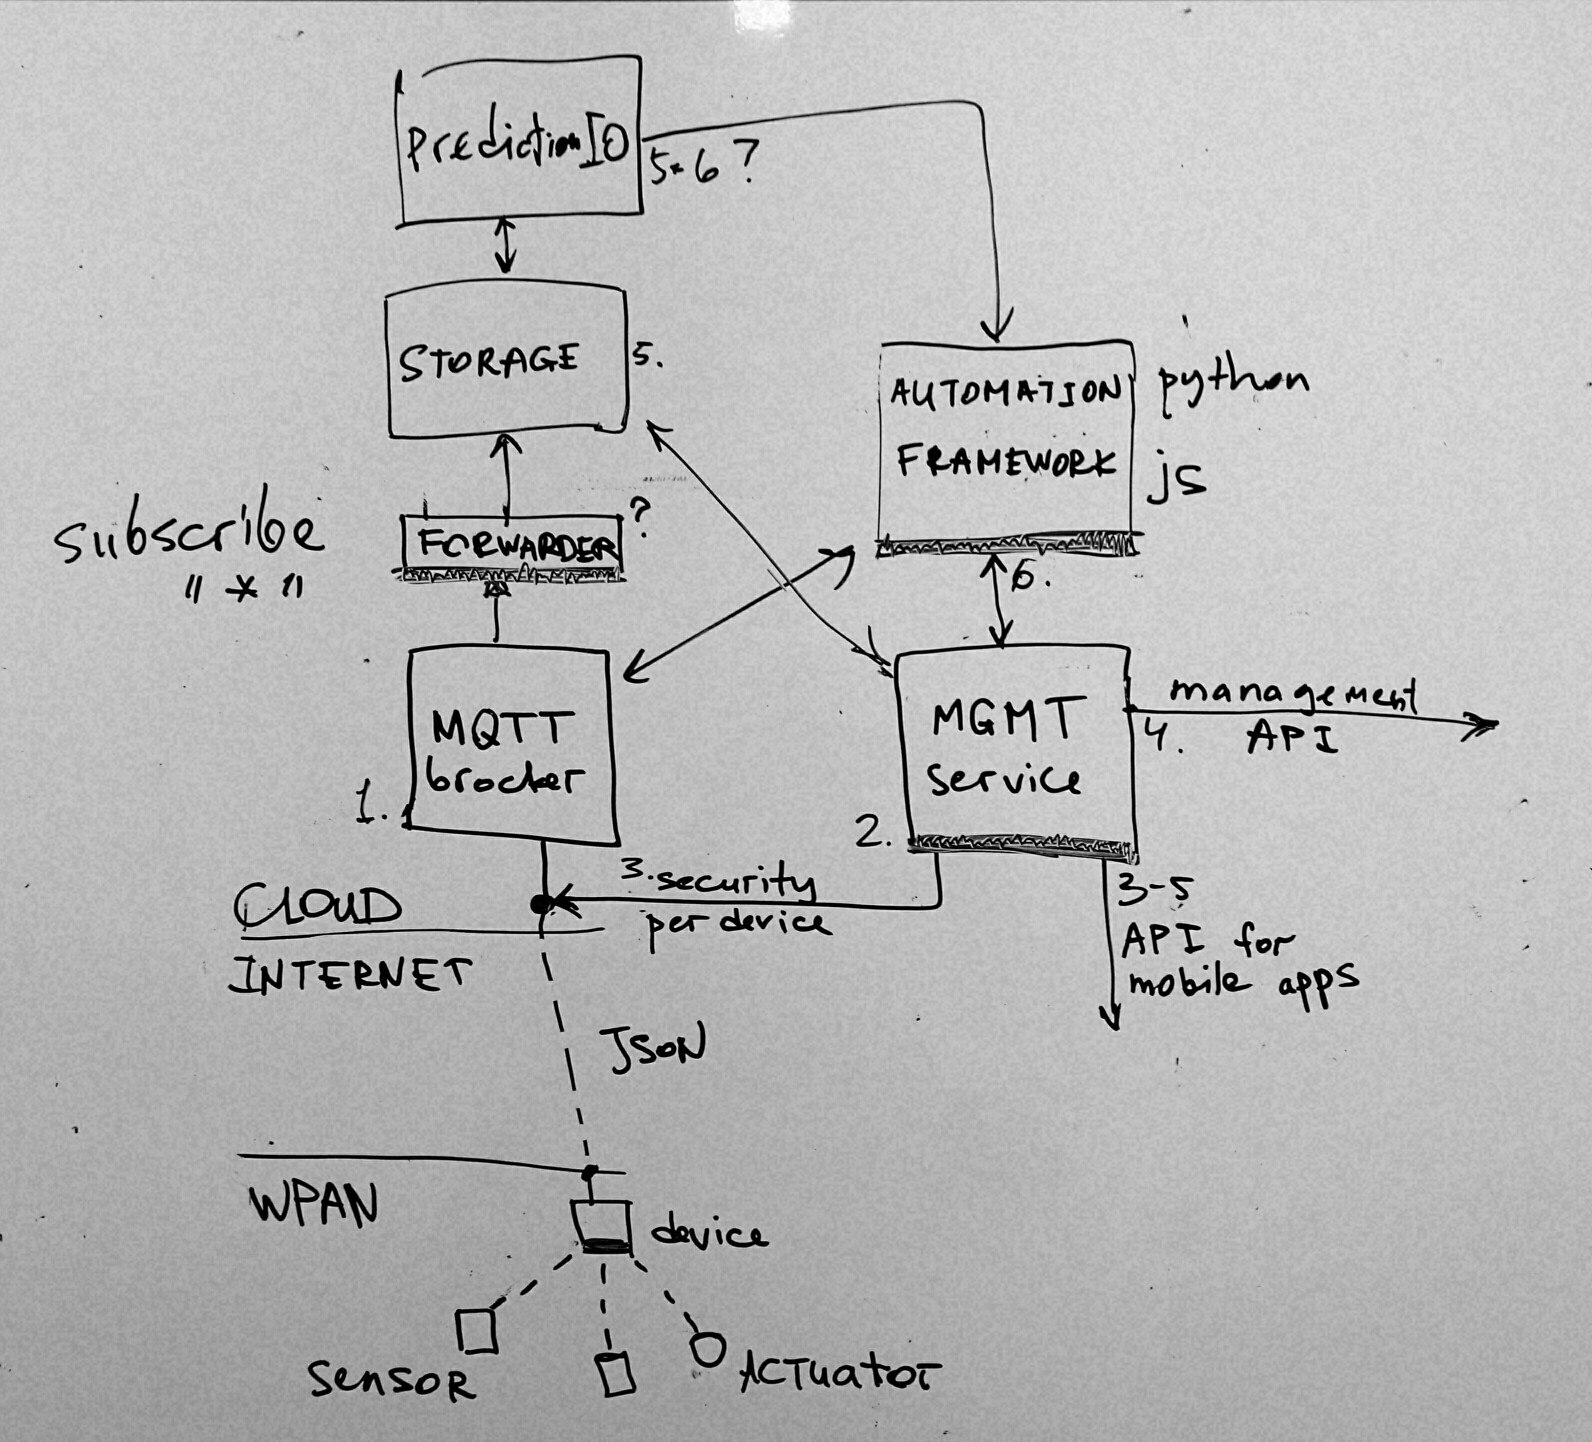 PredictionIO
5-6?
STORAGE
5.
AUTOMATION
FRAMEWORK
python
js
subscribe
"*"
FORWARDER
?
6.
MQTT
brocker
1.
MGMT
service
2.
management
4. API
3. security
per device
3-5
API for
mobile apps
CLOUD
INTERNET
JSON
WPAN
device
SENSOR
ACTUATOR